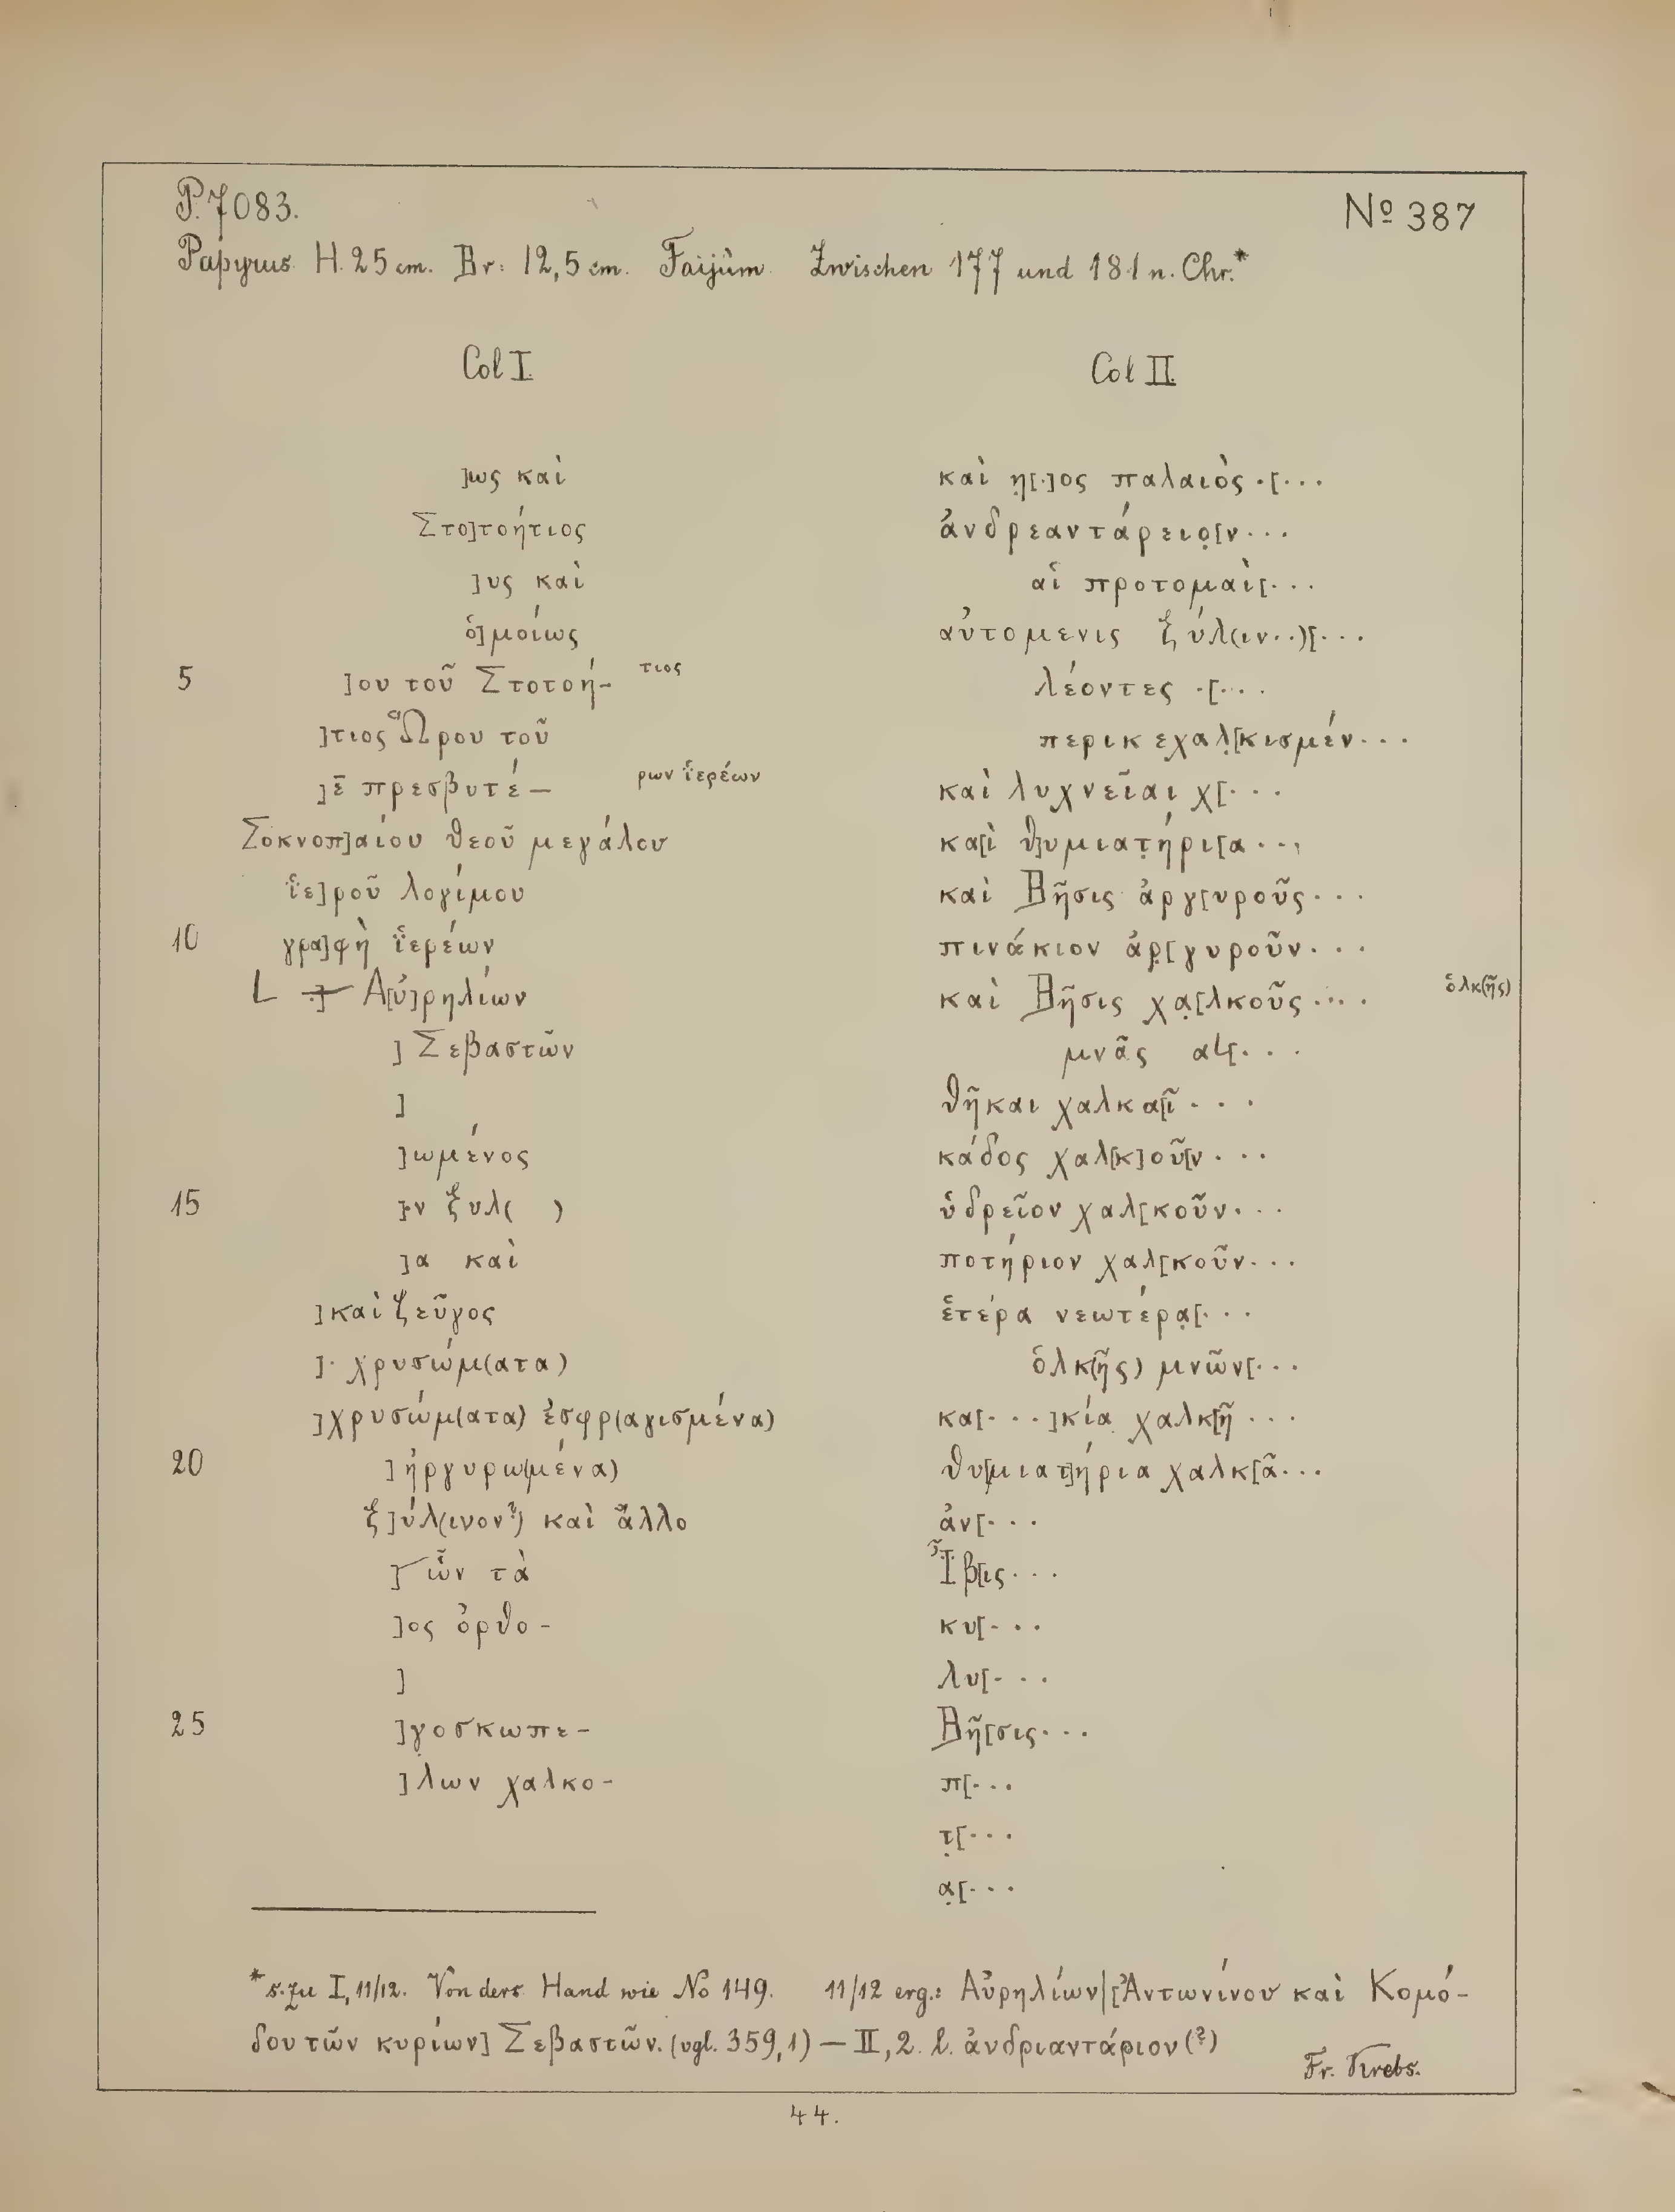 P. 7083.
No 387
Papyrus H. 25 cm. Br: 12,5 cm. Faijûm Zwischen 177 und 181 n. Chr.*
Col I.
]ως καὶ
Στο]τοήτιος
]υς καὶ
ὁ]μοίως
5 ]ου τοῦ Στοτοή- τιος
]τιος Ὥρου τοῦ
]ε̄ πρεσβυτέ- ρων ἱερέων
Σοκνοπ]αίου θεοῦ μεγάλου
ἱε]ροῦ λογίμου
10 γρα]φὴ ἱερέων
L .] Α[ὐ]ρηλίων
] Σεβαστῶν
]
]ωμένος
15 ].ν ξυλ( )
]α καὶ
] καὶ ζεῦγος
]. χρυσώμ(ατα)
] χρυσώμ(ατα) ἐσφρ(αγισμένα)
20 ] ἠργυρω(μένα)
ξ]ύλ(ινον?) καὶ ἄλλο
] ὧν τὰ
]ος ὀρθο-
]
25 ]γ̣οσκωπε-
]λων χαλκο-
Col II.
καὶ η̣[.]ος παλαιὸς .[...
ἀνδρεαντάρειο̣[ν...
αἱ προτομαὶ[...
αὐτομενις ξύλ(ιν..)[...
λέοντες .[...
περικεχαλ̣[κισμέν...
καὶ λυχνεῖαι χ[...
κα[ὶ θ]υμιατ̣ήρι[α...
καὶ Βῆσις ἀργ[υροῦς...
πινάκιον ἀρ̣[γυροῦν...
καὶ Βῆσις χα̣[λκοῦς.... ὁλκ(ῆς)
μνᾶς αL[...
θῆκαι χαλκα[ῖ...
κάδος χαλ[κ]οῦ[ν...
ὑδρεῖον χαλ[κοῦν...
ποτήριον χαλ[κοῦν...
ἑτέρα νεωτέρα̣[...
ὁλκ(ῆς) μνῶν[...
κα[...]κία χαλκ[ῆ...
θυ[μιατ]ήρια χαλκ[ᾶ...
ἀν[...
Ἶβ[ις...
κυ[...
λυ[...
Βῆ[σις...
π[...
τ̣[...
α̣[...
* s. zu I, 11/12. Von ders. Hand wie No 149. 11/12 erg.: Αὐρηλίων|[Ἀντωνίνου καὶ Κομό-
δου τῶν κυρίων] Σεβαστῶν. (vgl. 359,1) — II, 2. l. ἀνδριαντάριον (?)
Fr. Krebs.
44.